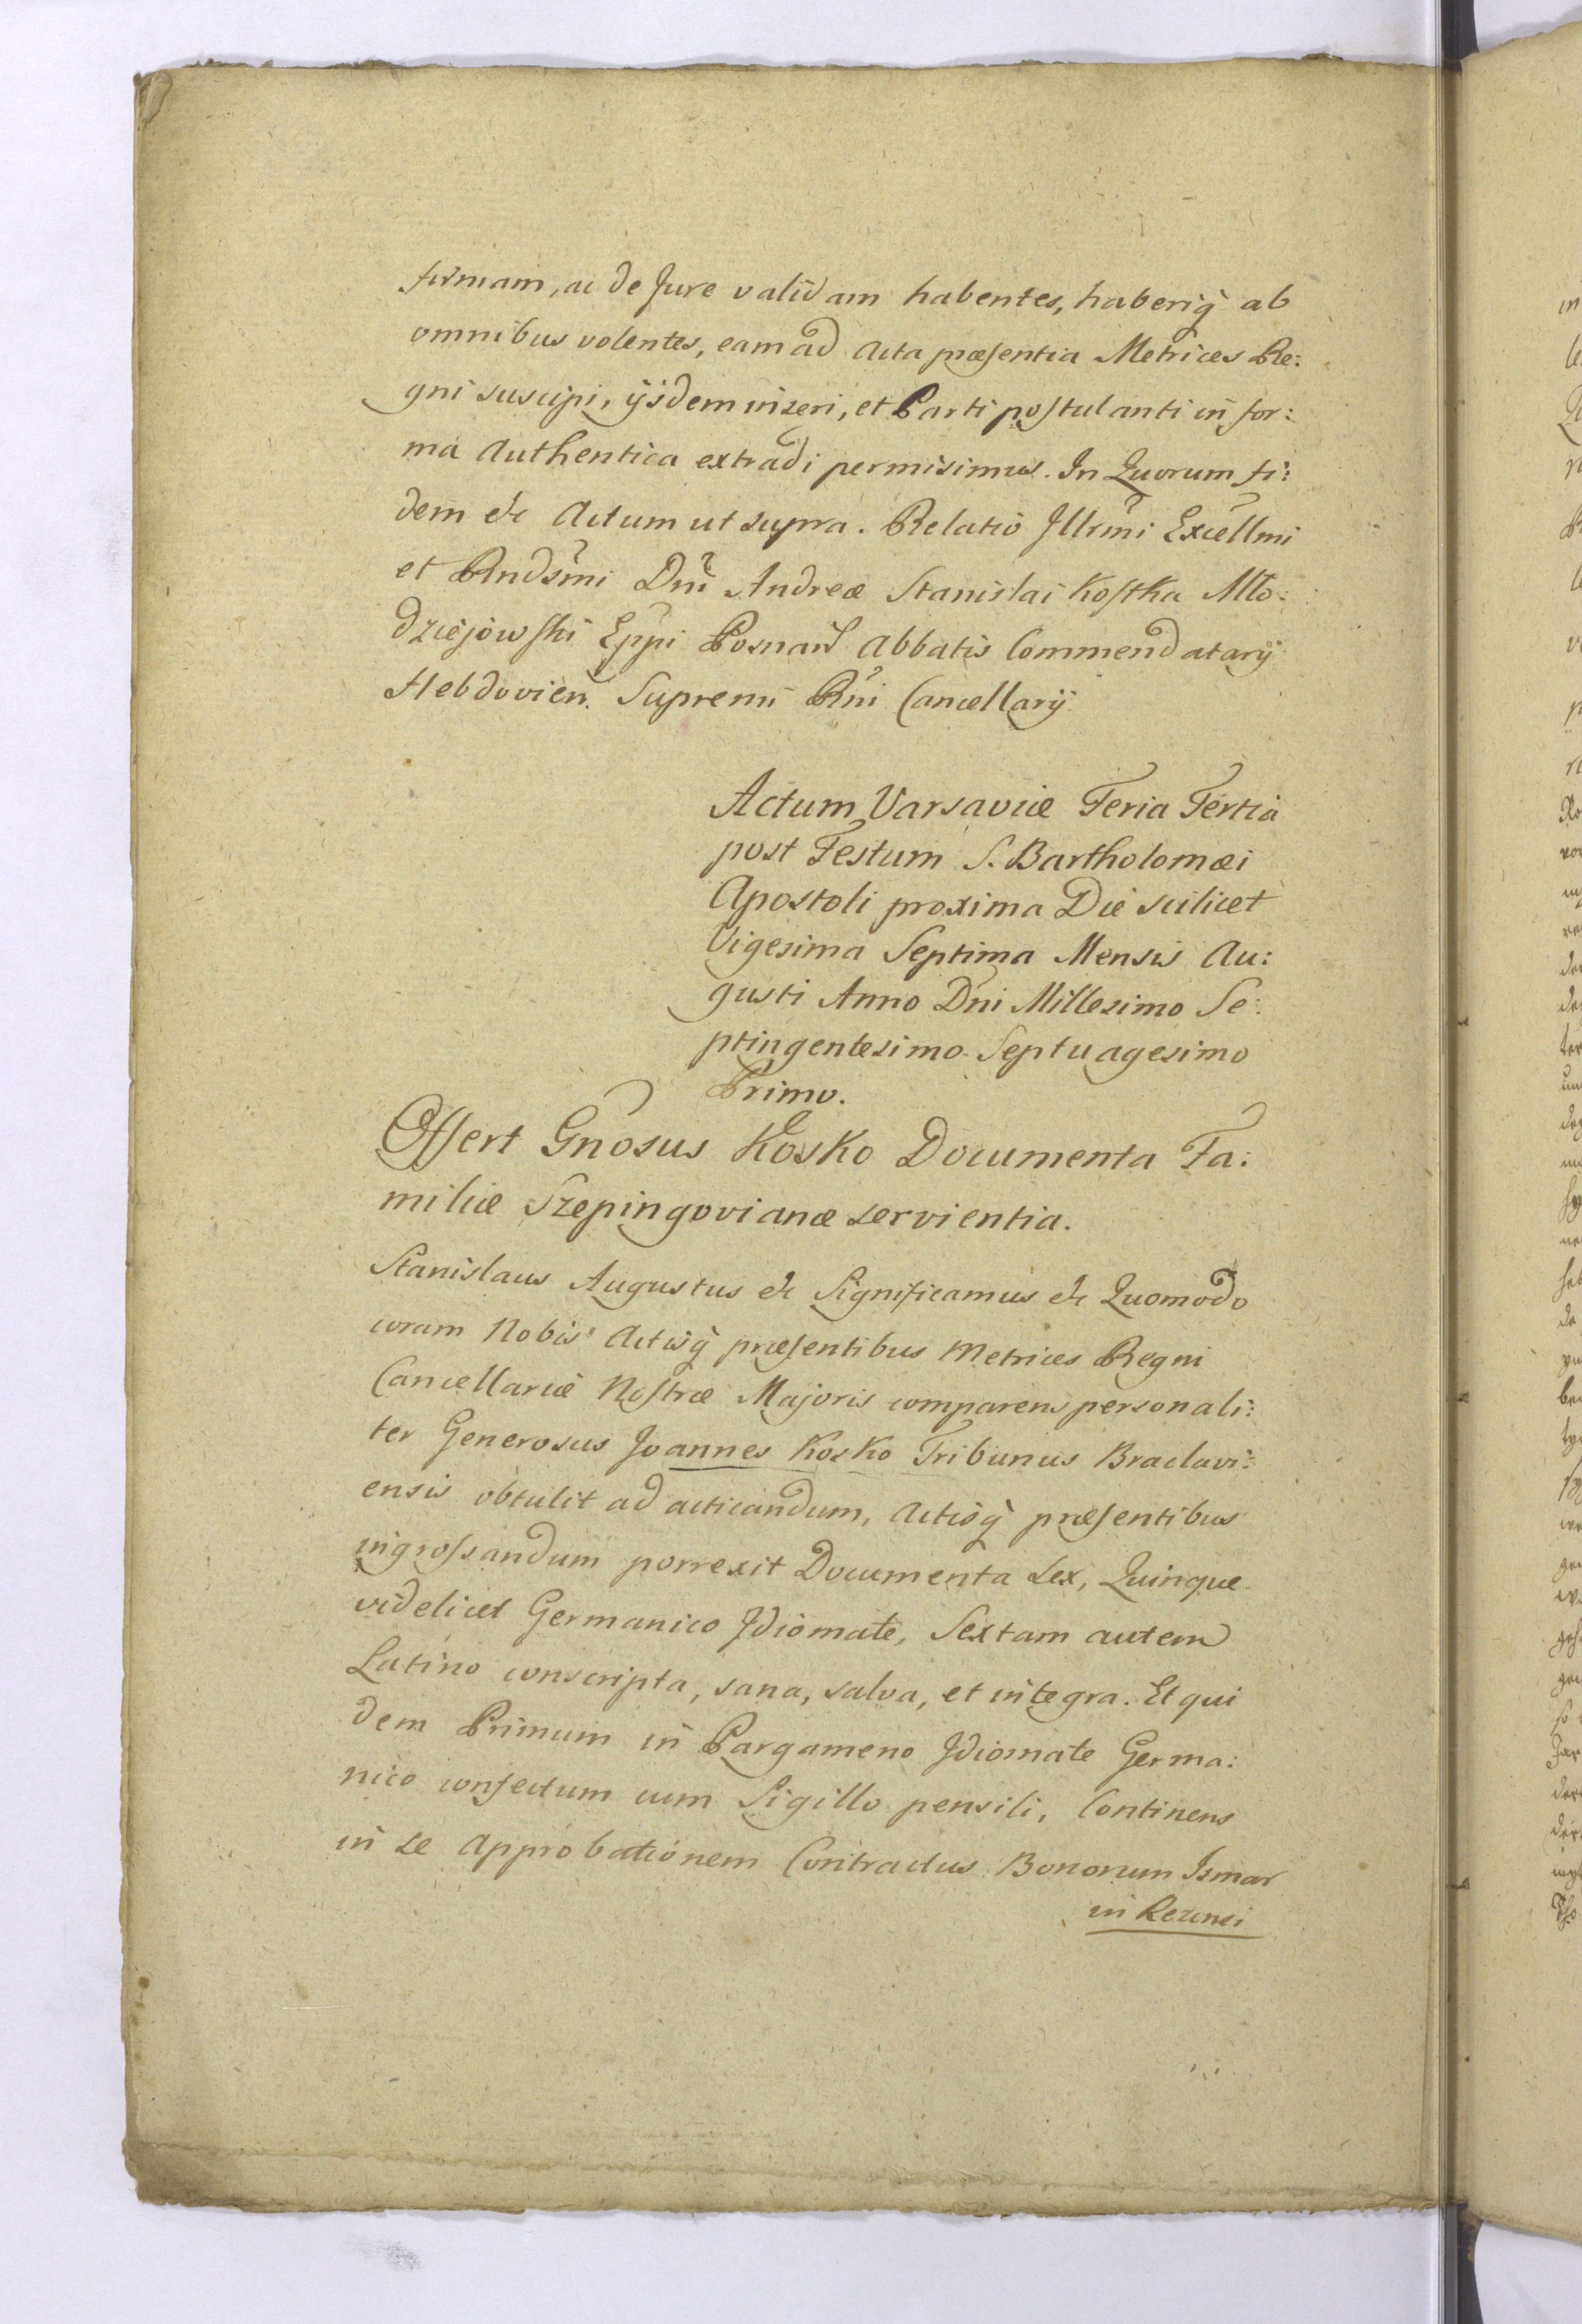 firmam, ac de Jure validam habentes, haberiq̀ ab
omnibus volentes, eam ad Acta præsentia Metrices Re:
gni suscipi, ijsdem inseri, et Parti postulanti in for:
ma Authentica extradi permisimus. In Quorum fi:
dem &c Actum ut supra. Relatio Illrmi Excellmi
et Rndsmi Dni Andreæ Stanislai Kostka Mło:
dziejowski Eppi Posnan Abbatis Commendatarij
Hebdovien. Supremi Rni Cancellarij
Actum Varsaviæ Feria Tertia
post Festum S. Bartholomæi
Apostoli proxima Die scilicet
Vigesima Septima Mensis Au:
gusti Anno Dni Millesimo Se:
ptingentesimo Septuagesimo
Primo.
Offert Gnosus Kosko Documenta Fa:
miliæ Szepingovianæ servientia.
Stanislaus Augustus &c Significamus &c Quomodo
coram Nobis Actisq̀ præsentibus Metrices Regni
Cancellariæ Nostræ Majoris comparens personali:
ter Generosus Joannes Kosko Tribunus Braclavi:
ensis obtulit ad acticandum, Actisq̀ præsentibus
ingrossandum porrexit Documenta sex, Quinque
videlicet Germanico Idiomate, Sextam autem
Latino conscripta, sana, salva, et integra. Et qui
dem Primum in Pargameno Idiomate Germa:
nico confectum cum Sigillo pensili, Continens
in se Approbationem Contractus Bonorum Ismar
in